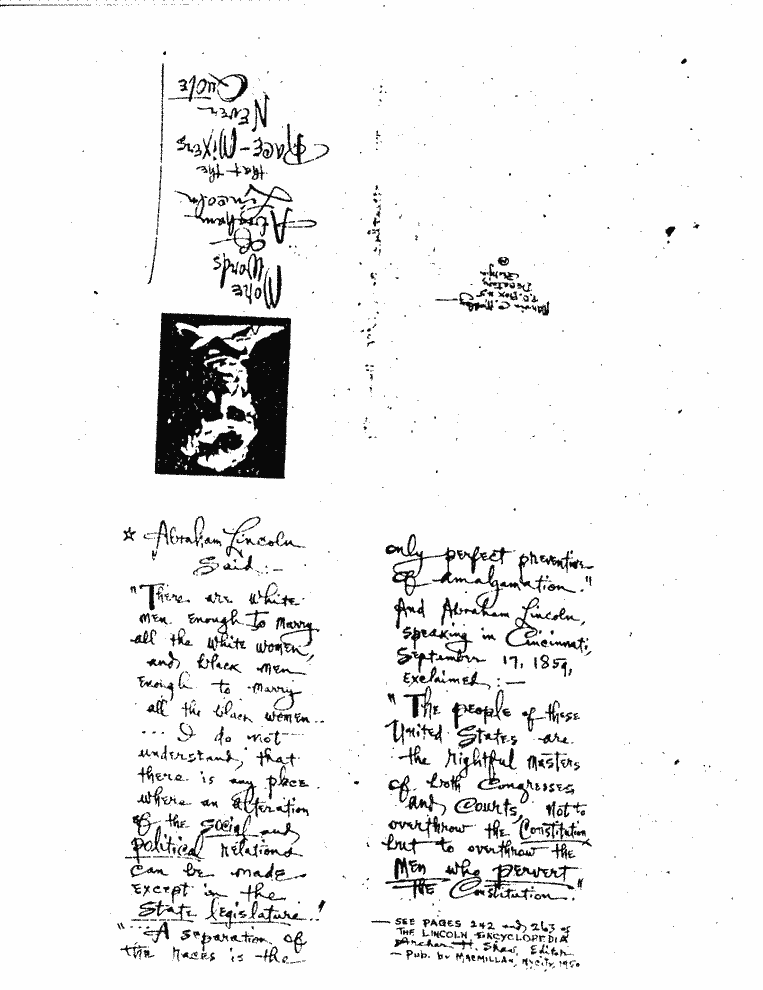 More
Words
of
Abraham
Lincoln
that the
Race-Mixers
Never
Quote
Decatur
Georgia
☆ Abraham Lincoln
Said:—
"There are white
men enough to marry
all the white women,
and black men
enough to marry
all the black women...
... I do not
understand, that
there is any place
where an alteration
of the social and
political relations
can be made
except in the
State legislature."
"...A separation of
the races is the
only perfect preventive
of amalgamation."
And Abraham Lincoln,
speaking in Cincinnati,
September 17, 1859,
exclaimed,:—
"The people of these
United States are
the rightful masters
of both Congresses
and Courts, not to
overthrow the Constitution
but to overthrow the
Men who pervert
the Constitution."
— SEE PAGES 242 and 263 of
THE LINCOLN ENCYCLOPEDIA
Archer H. Shaw, Editor
— Pub. by MACMILLAN, NY City, 1950